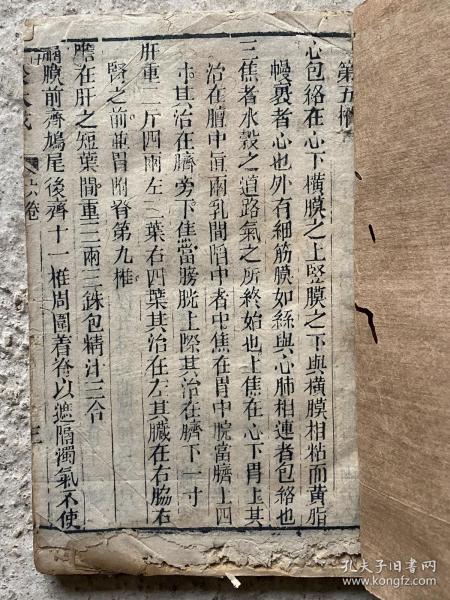 第五椎
心包絡在心下橫膜之上豎膜之下與橫膜相粘而黃脂
幔裹者心也外有細筋膜如絲與心肺相連者包絡也
三焦者水穀之道路氣之所終始也上焦在心下胃上其
治在膻中直兩乳間陷中者中焦在胃中脘當臍上四
寸其治在臍旁下焦當膀胱上際其治在臍下一寸
肝重二斤四兩左三葉右四葉其治在左其臟在右脇右
腎之前並胃附脊第九椎
膽在肝之短葉間重三兩三銖包精汁三合
膈膜前齊鳩尾後齊十一椎周圍着脊以遮隔濁氣不使
大成
六卷
孔夫子旧书网
www.kongfz.com